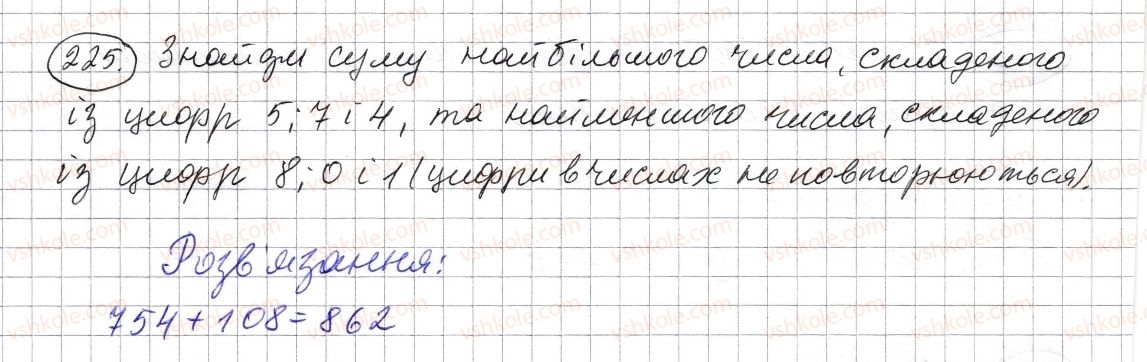 225. Знайди суму найбільшого числа, складеного
із цифр 5; 7 і 4, та найменшого числа, складеного
із цифр 8; 0 і 1 (цифри в числах не повторюються).
Розв'язання:
754 + 108 = 862